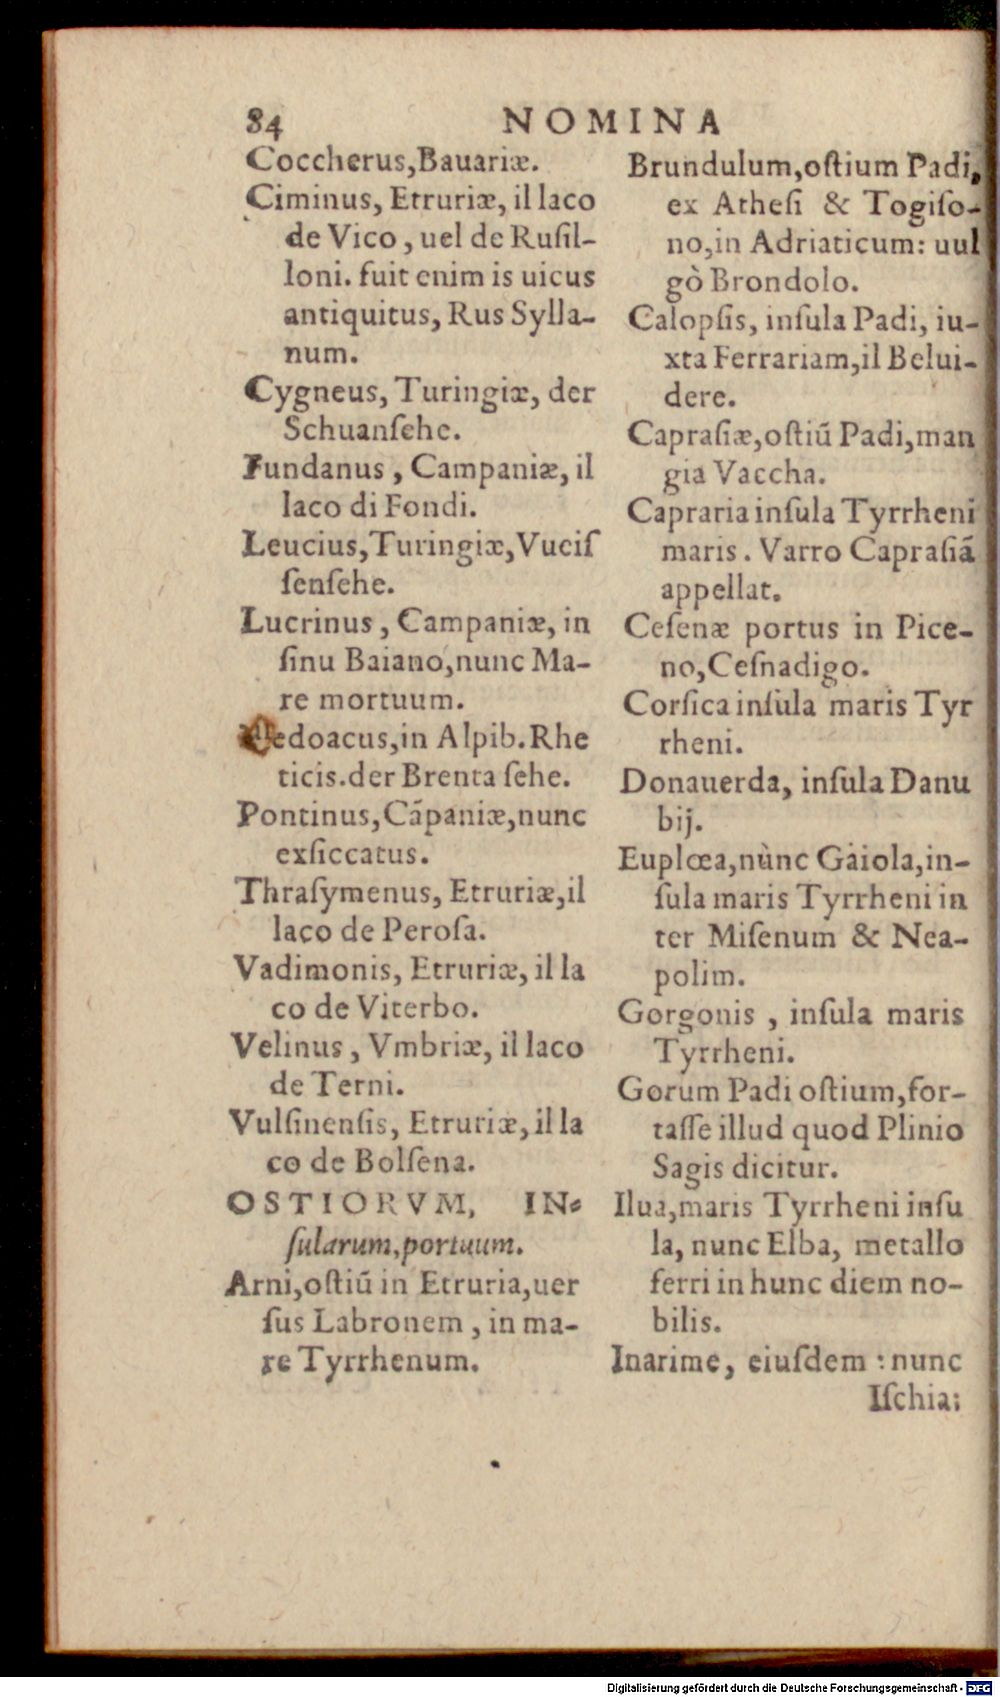 84 NOMINA
Coccherus,Bauariæ.
Ciminus, Etruriæ, il laco
de Vico, uel de Rusil-
loni. fuit enim is uicus
antiquitus, Rus Sylla-
num.
Cygneus, Turingiæ, der
Schuanſehe.
Fundanus, Campaniæ, il
laco di Fondi.
Leucius,Turingiæ,Vuciſ
ſenſehe.
Lucrinus, Campaniæ, in
ſinu Baiano,nunc Ma-
re mortuum.
Medoacus,in Alpib.Rhe
ticis.der Brenta ſehe.
Pontinus,Cãpaniæ,nunc
exſiccatus.
Thraſymenus, Etruriæ,il
laco de Peroſa.
Vadimonis, Etruriæ, il la
co de Viterbo.
Velinus, Vmbriæ, il laco
de Terni.
Vulſinenſis, Etruriæ, il la
co de Bolſena.
OSTIORVM, IN-
ſularum,portuum.
Arni,oſtiũ in Etruria,uer
ſus Labronem, in ma-
re Tyrrhenum.
Brundulum,oſtium Padi,
ex Atheſi & Togiſo-
no,in Adriaticum: uul
gò Brondolo.
Calopſis, inſula Padi, iu-
xta Ferrariam,il Belui-
dere.
Capraſiæ,oſtiũ Padi,man
gia Vaccha.
Capraria inſula Tyrrheni
maris. Varro Capraſiã
appellat.
Ceſenæ portus in Pice-
no,Ceſnadigo.
Corſica inſula maris Tyr
rheni.
Donauerda, inſula Danu
bij.
Euplœa,nùnc Gaiola,in-
ſula maris Tyrrheni in
ter Miſenum & Nea-
polim.
Gorgonis, inſula maris
Tyrrheni.
Gorum Padi oſtium,for-
taſſe illud quod Plinio
Sagis dicitur.
Ilua,maris Tyrrheni inſu
la, nunc Elba, metallo
ferri in hunc diem no-
bilis.
Inarime, eiuſdem : nunc
Iſchia:
Digitalisierung gefördert durch die Deutsche Forschungsgemeinschaft - DFG